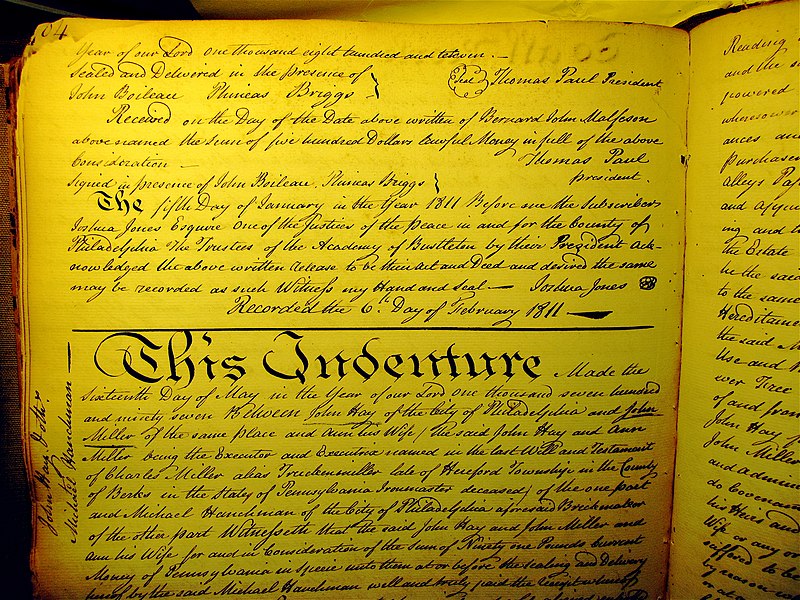 64
Year of our Lord one thousand eight hundred and eleven.—
Sealed and Delivered in the presence of
John Boileau Phineas Briggs
Seal Thomas Paul President
Received on the Day of the Date above written of Bernard John
above named the Sum of five hundred Dollars Lawful Money in full of the above
Consideration —
Thomas Paul
Signed in presence of John Boileau. Phineas Briggs
President
The fifth Day of January in the Year 1811 Before me the Subscriber
Joshua Jones Esquire One of the Justices of the Peace in and for the County of
Philadelphia The Trustees of the Academy of Bustleton by their President Ack-
nowledged the above written Release to be their Act and Deed and desired the same
may be recorded as such Witness my Hand and Seal — Joshua Jones
Recorded the 6th Day of February 1811 —
This Indenture Made the
Sixteenth Day of May in the Year of our Lord one thousand seven hundred
and ninety seven Between John Hay of the City of Philadelphia and John
Miller of the same place and Ann his Wife / the said John Hay and Ann
Miller being the Executor and Executrix named in the last Will and Testament
of Charles Miller alias late of Hereford Township in the County
of Berks in the State of Pennsylvania Ironmaster deceased / of the one part
and Michael Hanchman of the City of Philadelphia aforesaid Brickmaker
of the other part Witnesseth that the said John Hay and John Miller and
Ann his Wife for and in Consideration of the Sum of Ninety one Pounds Current
Money of Pennsylvania in specie unto them at or before the sealing and Delivery
by the said Michael Hanchman well and truly paid the receipt whereof
John Hay & others
Michael Hanchman —
Reading
and the
powered
wheresoever
ances and
Purchasers
Alleys
and
ing and
the Estate
be the said
to the same
Hereditaments
the said
Use and
ever Free
of and from
John Hay
John Miller
and
do Covenant
his Heirs and
Wife or any
suffered to be
by reason